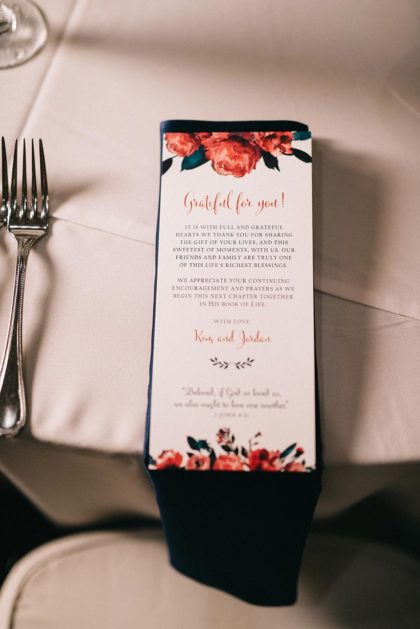 Grateful for you!
IT IS WITH FULL AND GRATEFUL
HEARTS WE THANK YOU FOR SHARING
THE GIFT OF YOUR LIVES, AND THIS
SWEETEST OF MOMENTS, WITH US. OUR
FRIENDS AND FAMILY ARE TRULY ONE
OF THIS LIFE'S RICHEST BLESSINGS.
WE APPRECIATE YOUR CONTINUING
ENCOURAGEMENT AND PRAYERS AS WE
BEGIN THIS NEXT CHAPTER TOGETHER
IN HIS BOOK OF LIFE.
WITH LOVE,
Kim and Jordan
"Beloved, if God so loved us,
we also ought to love one another."
1 JOHN 4:11